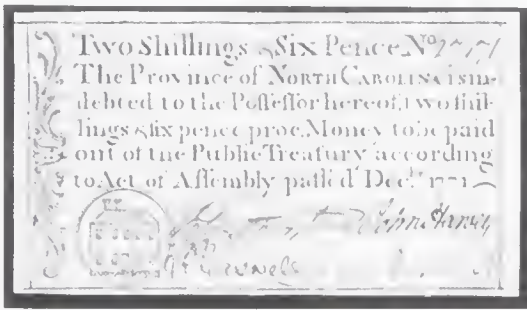 Two Shillings & Six Pence No
The Province of North Carolina is in-
debted to the Poſſeſſor hereof, two ſhil-
lings & ſix pence proc. Money to be paid
out of the Public Treaſury according
to Act of Aſſembly paſſ'd Decr. 1771
John Harvey